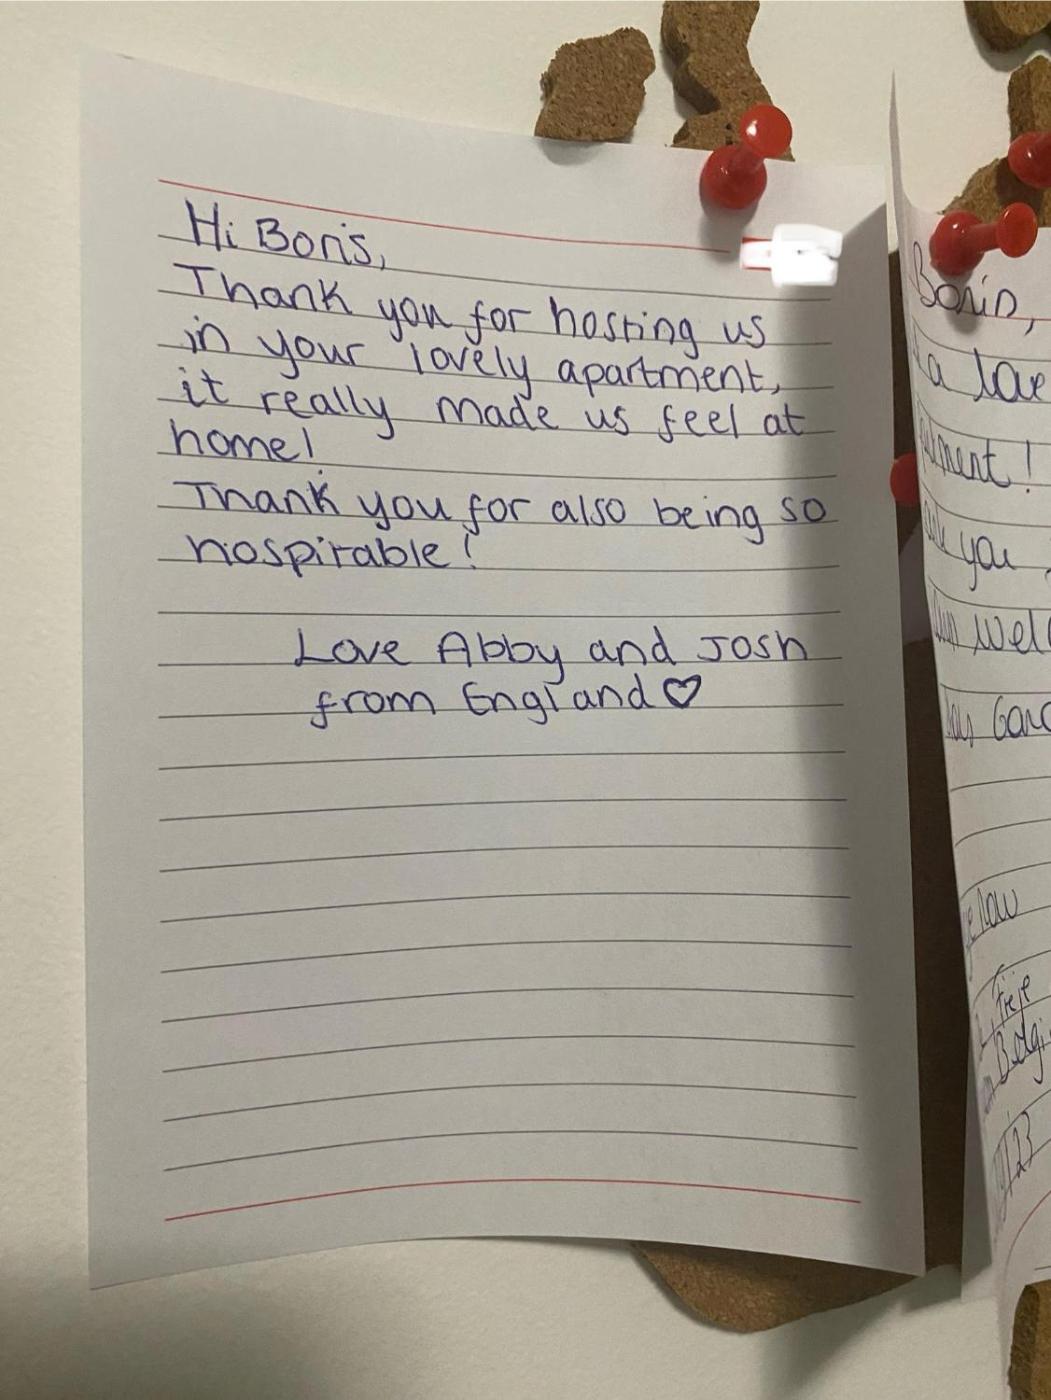 Hi Boris,
Thank you for hosting us
in your lovely apartment,
it really made us feel at
home!
Thank you for also being so
hospitable!
Love Abby and Josh
from England♡
a love
you
wel